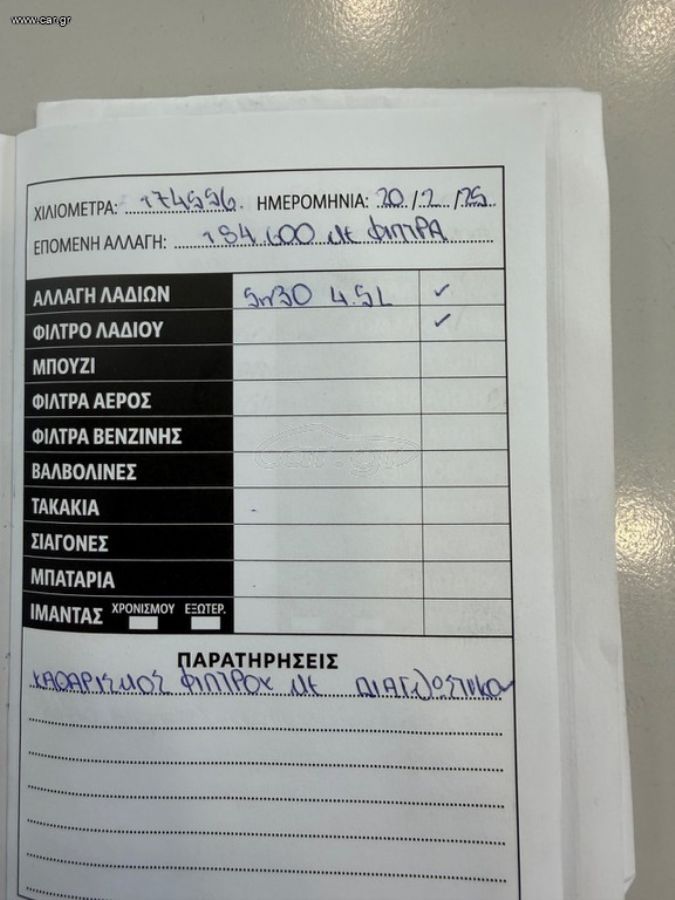 www.car.gr
ΧΙΛΙΟΜΕΤΡΑ: 174556. ΗΜΕΡΟΜΗΝΙΑ: 20/2/25
ΕΠΟΜΕΝΗ ΑΛΛΑΓΗ: 184.600 με ΦΙΛΤΡΑ
ΑΛΛΑΓΗ ΛΑΔΙΩΝ 5W30 4.5L ✓
ΦΙΛΤΡΟ ΛΑΔΙΟΥ ✓
ΜΠΟΥΖΙ
ΦΙΛΤΡΑ ΑΕΡΟΣ
ΦΙΛΤΡΑ ΒΕΝΖΙΝΗΣ
ΒΑΛΒΟΛΙΝΕΣ
ΤΑΚΑΚΙΑ
ΣΙΑΓΟΝΕΣ
ΜΠΑΤΑΡΙΑ
ΙΜΑΝΤΑΣ ΧΡΟΝΙΣΜΟΥ ΕΞΩΤΕΡ.
ΠΑΡΑΤΗΡΗΣΕΙΣ
ΚΑΘΑΡΙΣΜΟΣ ΦΙΛΤΡΟΥ με ΔΙΑΓΝΩΣΤΙΚΟ
car.gr